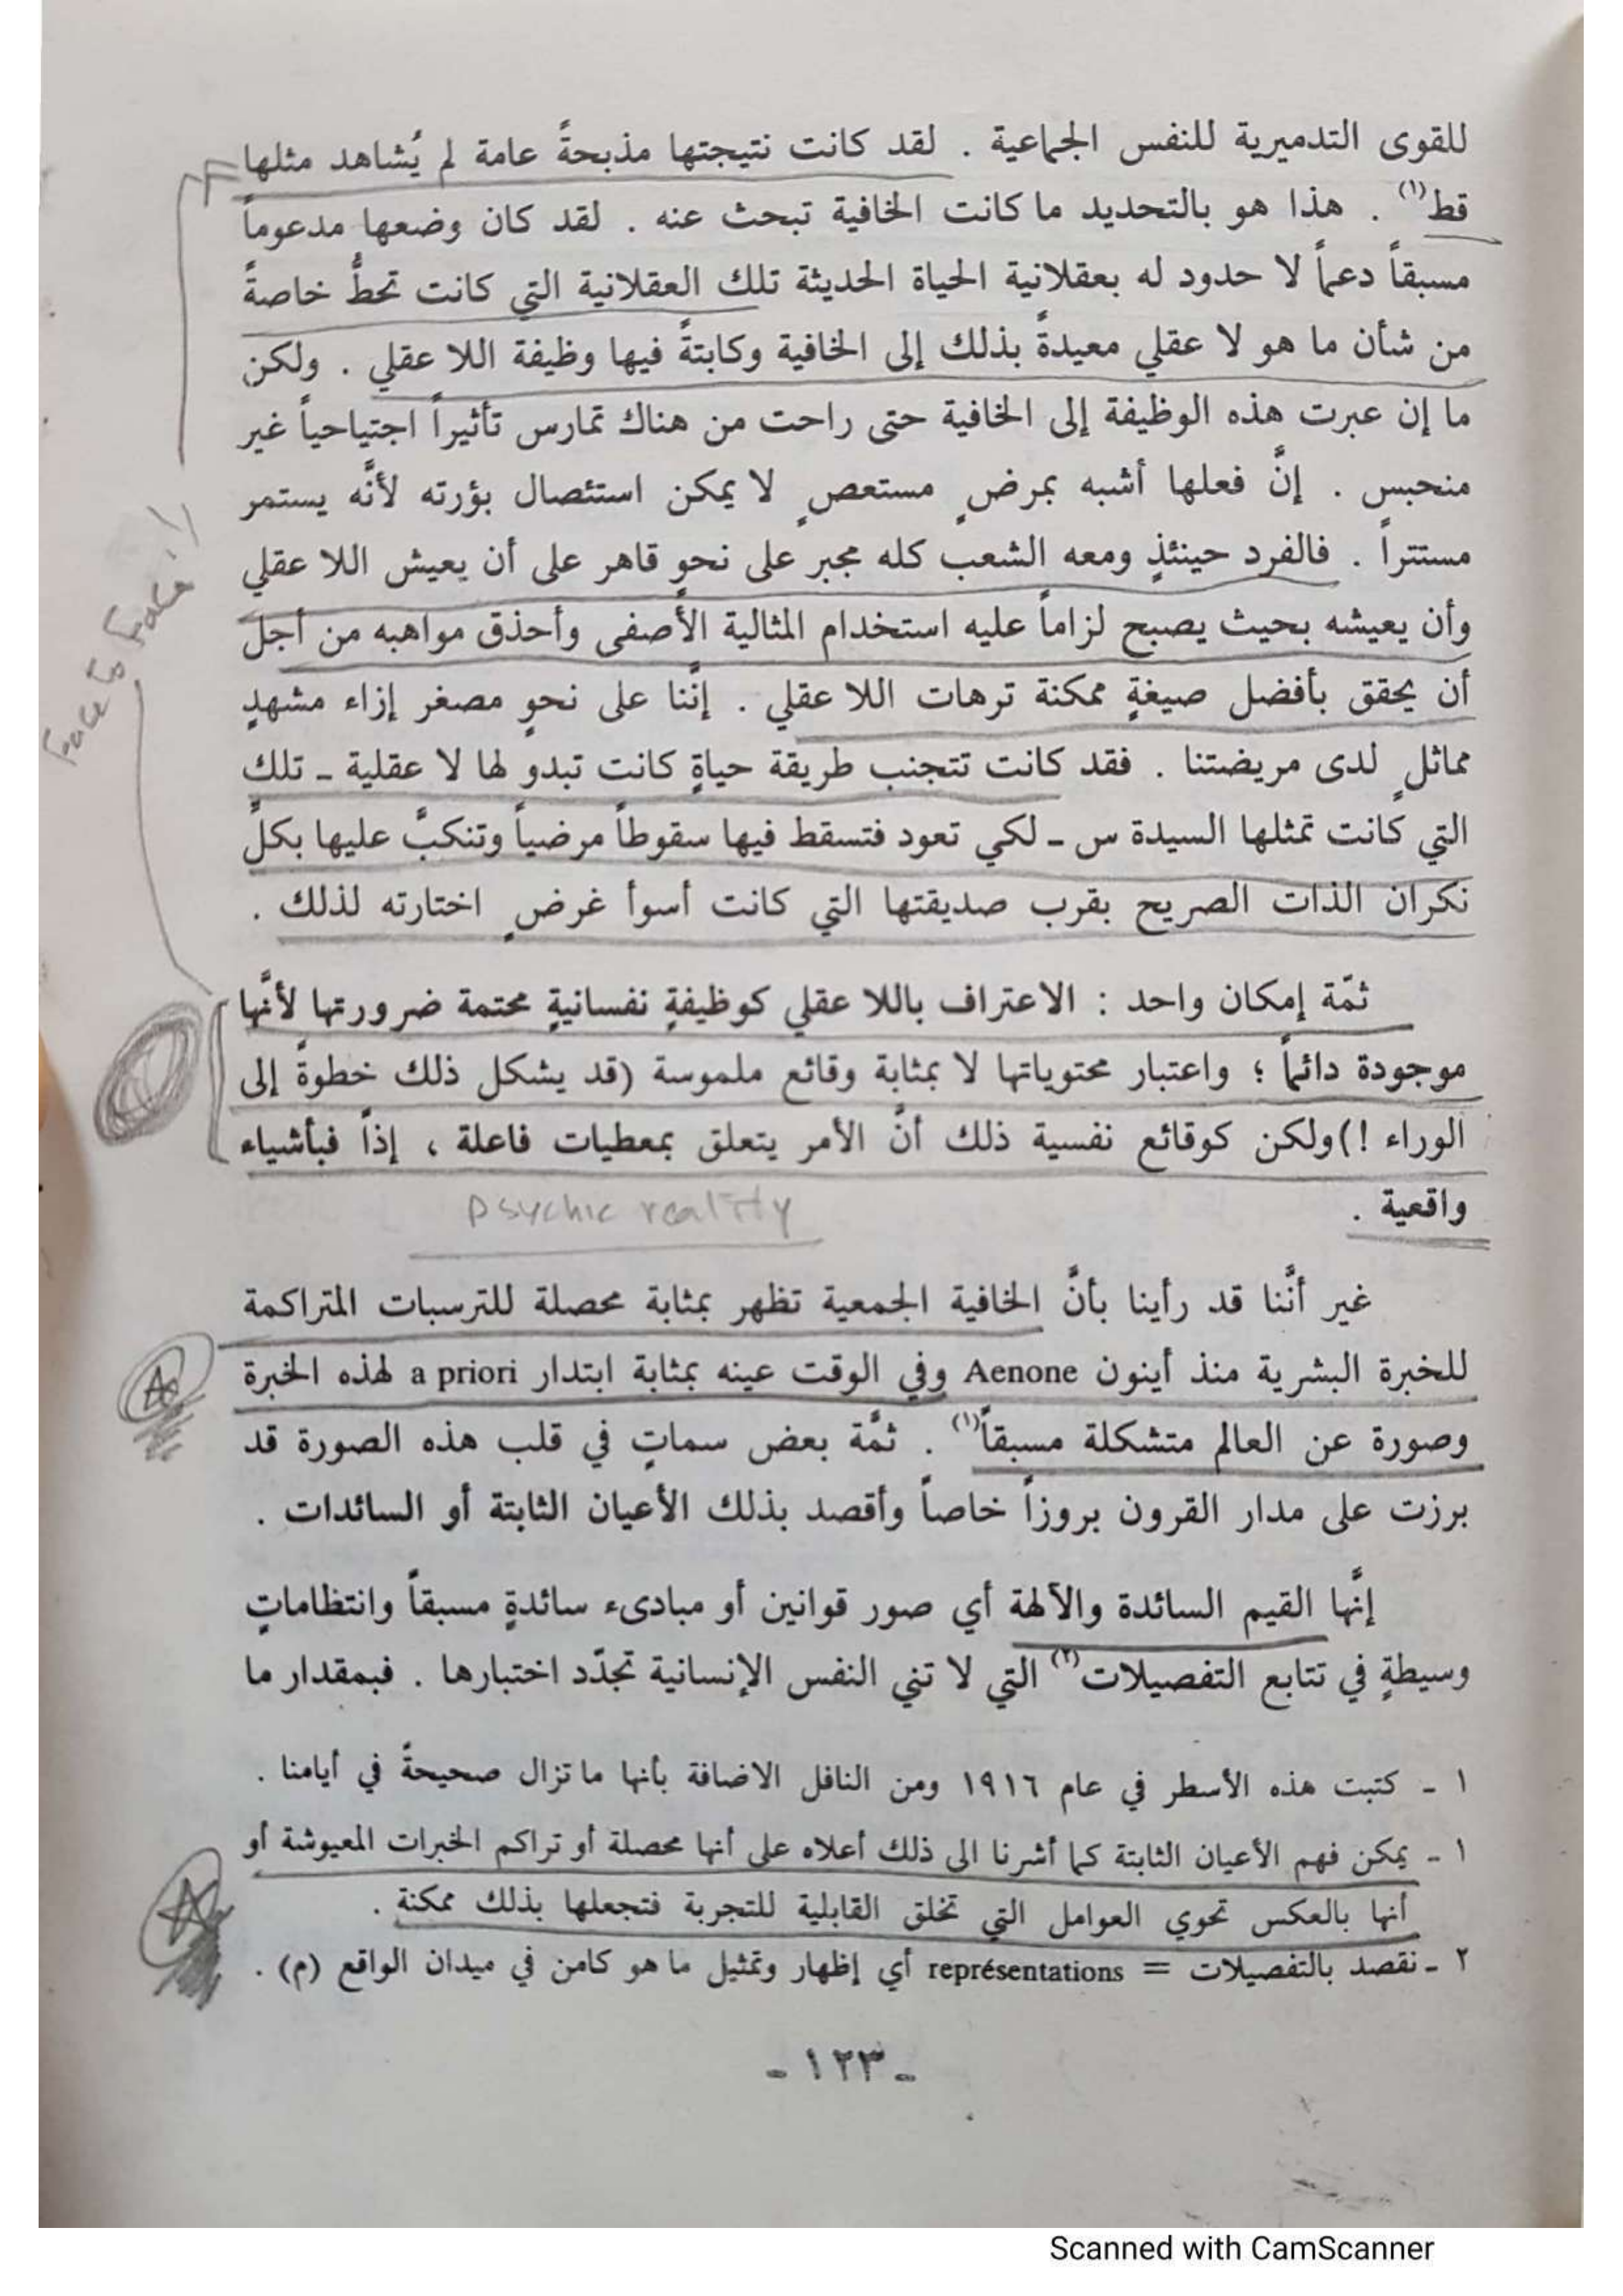 للقوى التدميرية للنفس الجماعية . لقد كانت نتيجتها مذبحةً عامة لم يُشاهد مثلها
قط(١) . هذا هو بالتحديد ما كانت الخافية تبحث عنه . لقد كان وضعها مدعوماً
مسبقاً دعماً لا حدود له بعقلانية الحياة الحديثة تلك العقلانية التي كانت تحطُّ خاصةً
من شأن ما هو لا عقلي معيدةً بذلك إلى الخافية وكابتةً فيها وظيفة اللا عقلي . ولكن
ما إن عبرت هذه الوظيفة إلى الخافية حتى راحت من هناك تمارس تأثيراً اجتياحياً غير
منحبس . إنَّ فعلها أشبه بمرضٍ مستعصٍ لا يمكن استئصال بؤرته لأنَّه يستمر
مستتراً . فالفرد حينئذٍ ومعه الشعب كله مجبر على نحوٍ قاهر على أن يعيش اللا عقلي
وأن يعيشه بحيث يصبح لزاماً عليه استخدام المثالية الأصفى وأحذق مواهبه من أجل
أن يحقق بأفضل صيغةٍ ممكنة ترهات اللا عقلي . إنَّنا على نحوٍ مصغر إزاء مشهدٍ
مماثلٍ لدى مريضتنا . فقد كانت تتجنب طريقة حياةٍ كانت تبدو لها لا عقلية ـ تلك
التي كانت تمثلها السيدة س ـ لكي تعود فتسقط فيها سقوطاً مرضياً وتنكبَّ عليها بكلِّ
نكران الذات الصريح بقرب صديقتها التي كانت أسوأ غرضٍ اختارته لذلك .
Face to Face !!
ثمّة إمكان واحد : الاعتراف باللا عقلي كوظيفةٍ نفسانيةٍ محتمة ضرورتها لأنَّها
موجودة دائماً ؛ واعتبار محتوياتها لا بمثابة وقائع ملموسة (قد يشكل ذلك خطوةً إلى
الوراء !) ولكن كوقائع نفسية ذلك أنَّ الأمر يتعلق بمعطيات فاعلة ، إذاً فبأشياء
واقعية .
psychic reality
غير أنَّنا قد رأينا بأنَّ الخافية الجمعية تظهر بمثابة محصلة للترسبات المتراكمة
للخبرة البشرية منذ أينون Aenone وفي الوقت عينه بمثابة ابتدار a priori لهذه الخبرة
وصورة عن العالم متشكلة مسبقاً(١) . ثمَّة بعض سماتٍ في قلب هذه الصورة قد
برزت على مدار القرون بروزاً خاصاً وأقصد بذلك الأعيان الثابتة أو السائدات .
إنَّها القيم السائدة والآلهة أي صور قوانين أو مبادىء سائدةٍ مسبقاً وانتظاماتٍ
وسيطةٍ في تتابع التفصيلات(٢) التي لا تني النفس الإنسانية تجدّد اختبارها . فبمقدار ما
١ ـ كتبت هذه الأسطر في عام ١٩١٦ ومن النافل الاضافة بأنها ما تزال صحيحةً في أيامنا .
١ ـ يمكن فهم الأعيان الثابتة كما أشرنا الى ذلك أعلاه على أنها محصلة أو تراكم الخبرات المعيوشة أو
أنها بالعكس تحوي العوامل التي تخلق القابلية للتجربة فتجعلها بذلك ممكنة .
٢ ـ نقصد بالتفصيلات = représentations أي إظهار وتمثيل ما هو كامن في ميدان الواقع (م) .
ـ ١٢٣ ـ
Scanned with CamScanner